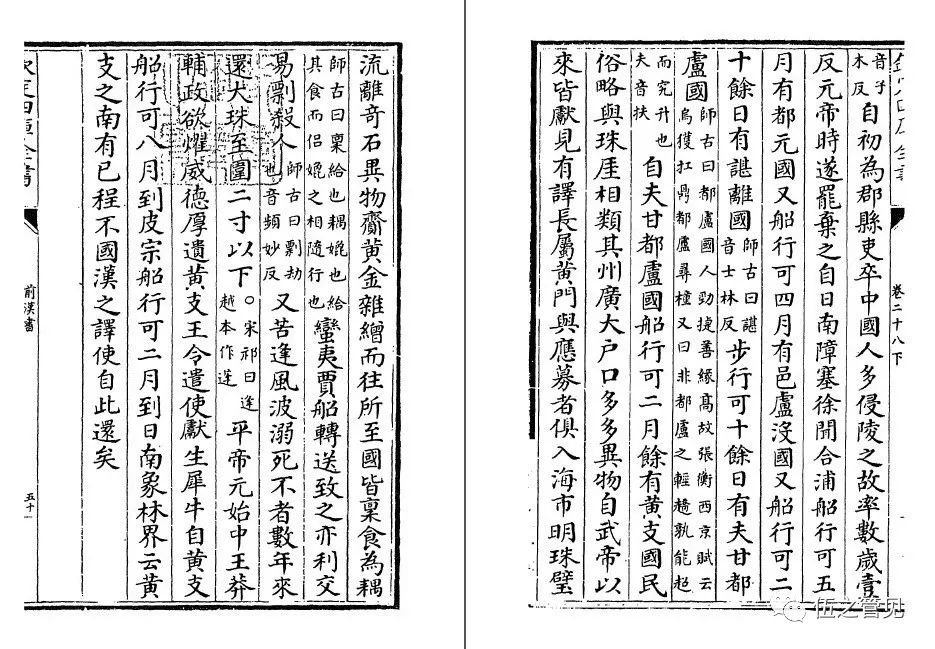 卷二十八下
音子本反自初為郡縣吏卒中國人多侵陵之故率數歲壹
反元帝時遂罷棄之自日南障塞徐聞合浦船行可五
月有都元國又船行可四月有邑盧沒國又船行可二
十餘日有諶離國師古曰諶音士林反步行可十餘日有夫甘都
盧國師古曰都盧國人勁捷善緣高故張衡西京賦云烏獲扛鼎都盧尋橦又曰非都盧之輕趫孰能超
而究升也夫音扶自夫甘都盧國船行可二月餘有黃支國民
俗略與珠厓相類其州廣大戶口多多異物自武帝以
來皆獻見有譯長屬黃門與應募者俱入海市明珠璧
流離奇石異物齎黃金雜繒而往所至國皆稟食為耦
師古曰稟給也耦媲也給其食而侶媲之相隨行也蠻夷賈船轉送致之亦利交
易剽殺人師古曰剽劫也音頻妙反又苦逢風波溺死不者數年來
還大珠至圍二寸以下○宋祁曰逢越本作蓬平帝元始中王莽
輔政欲耀威德厚遺黃支王令遣使獻生犀牛自黃支
船行可八月到皮宗船行可二月到日南象林界云黃
支之南有已程不國漢之譯使自此還矣
前漢書
五十一
伍之管见